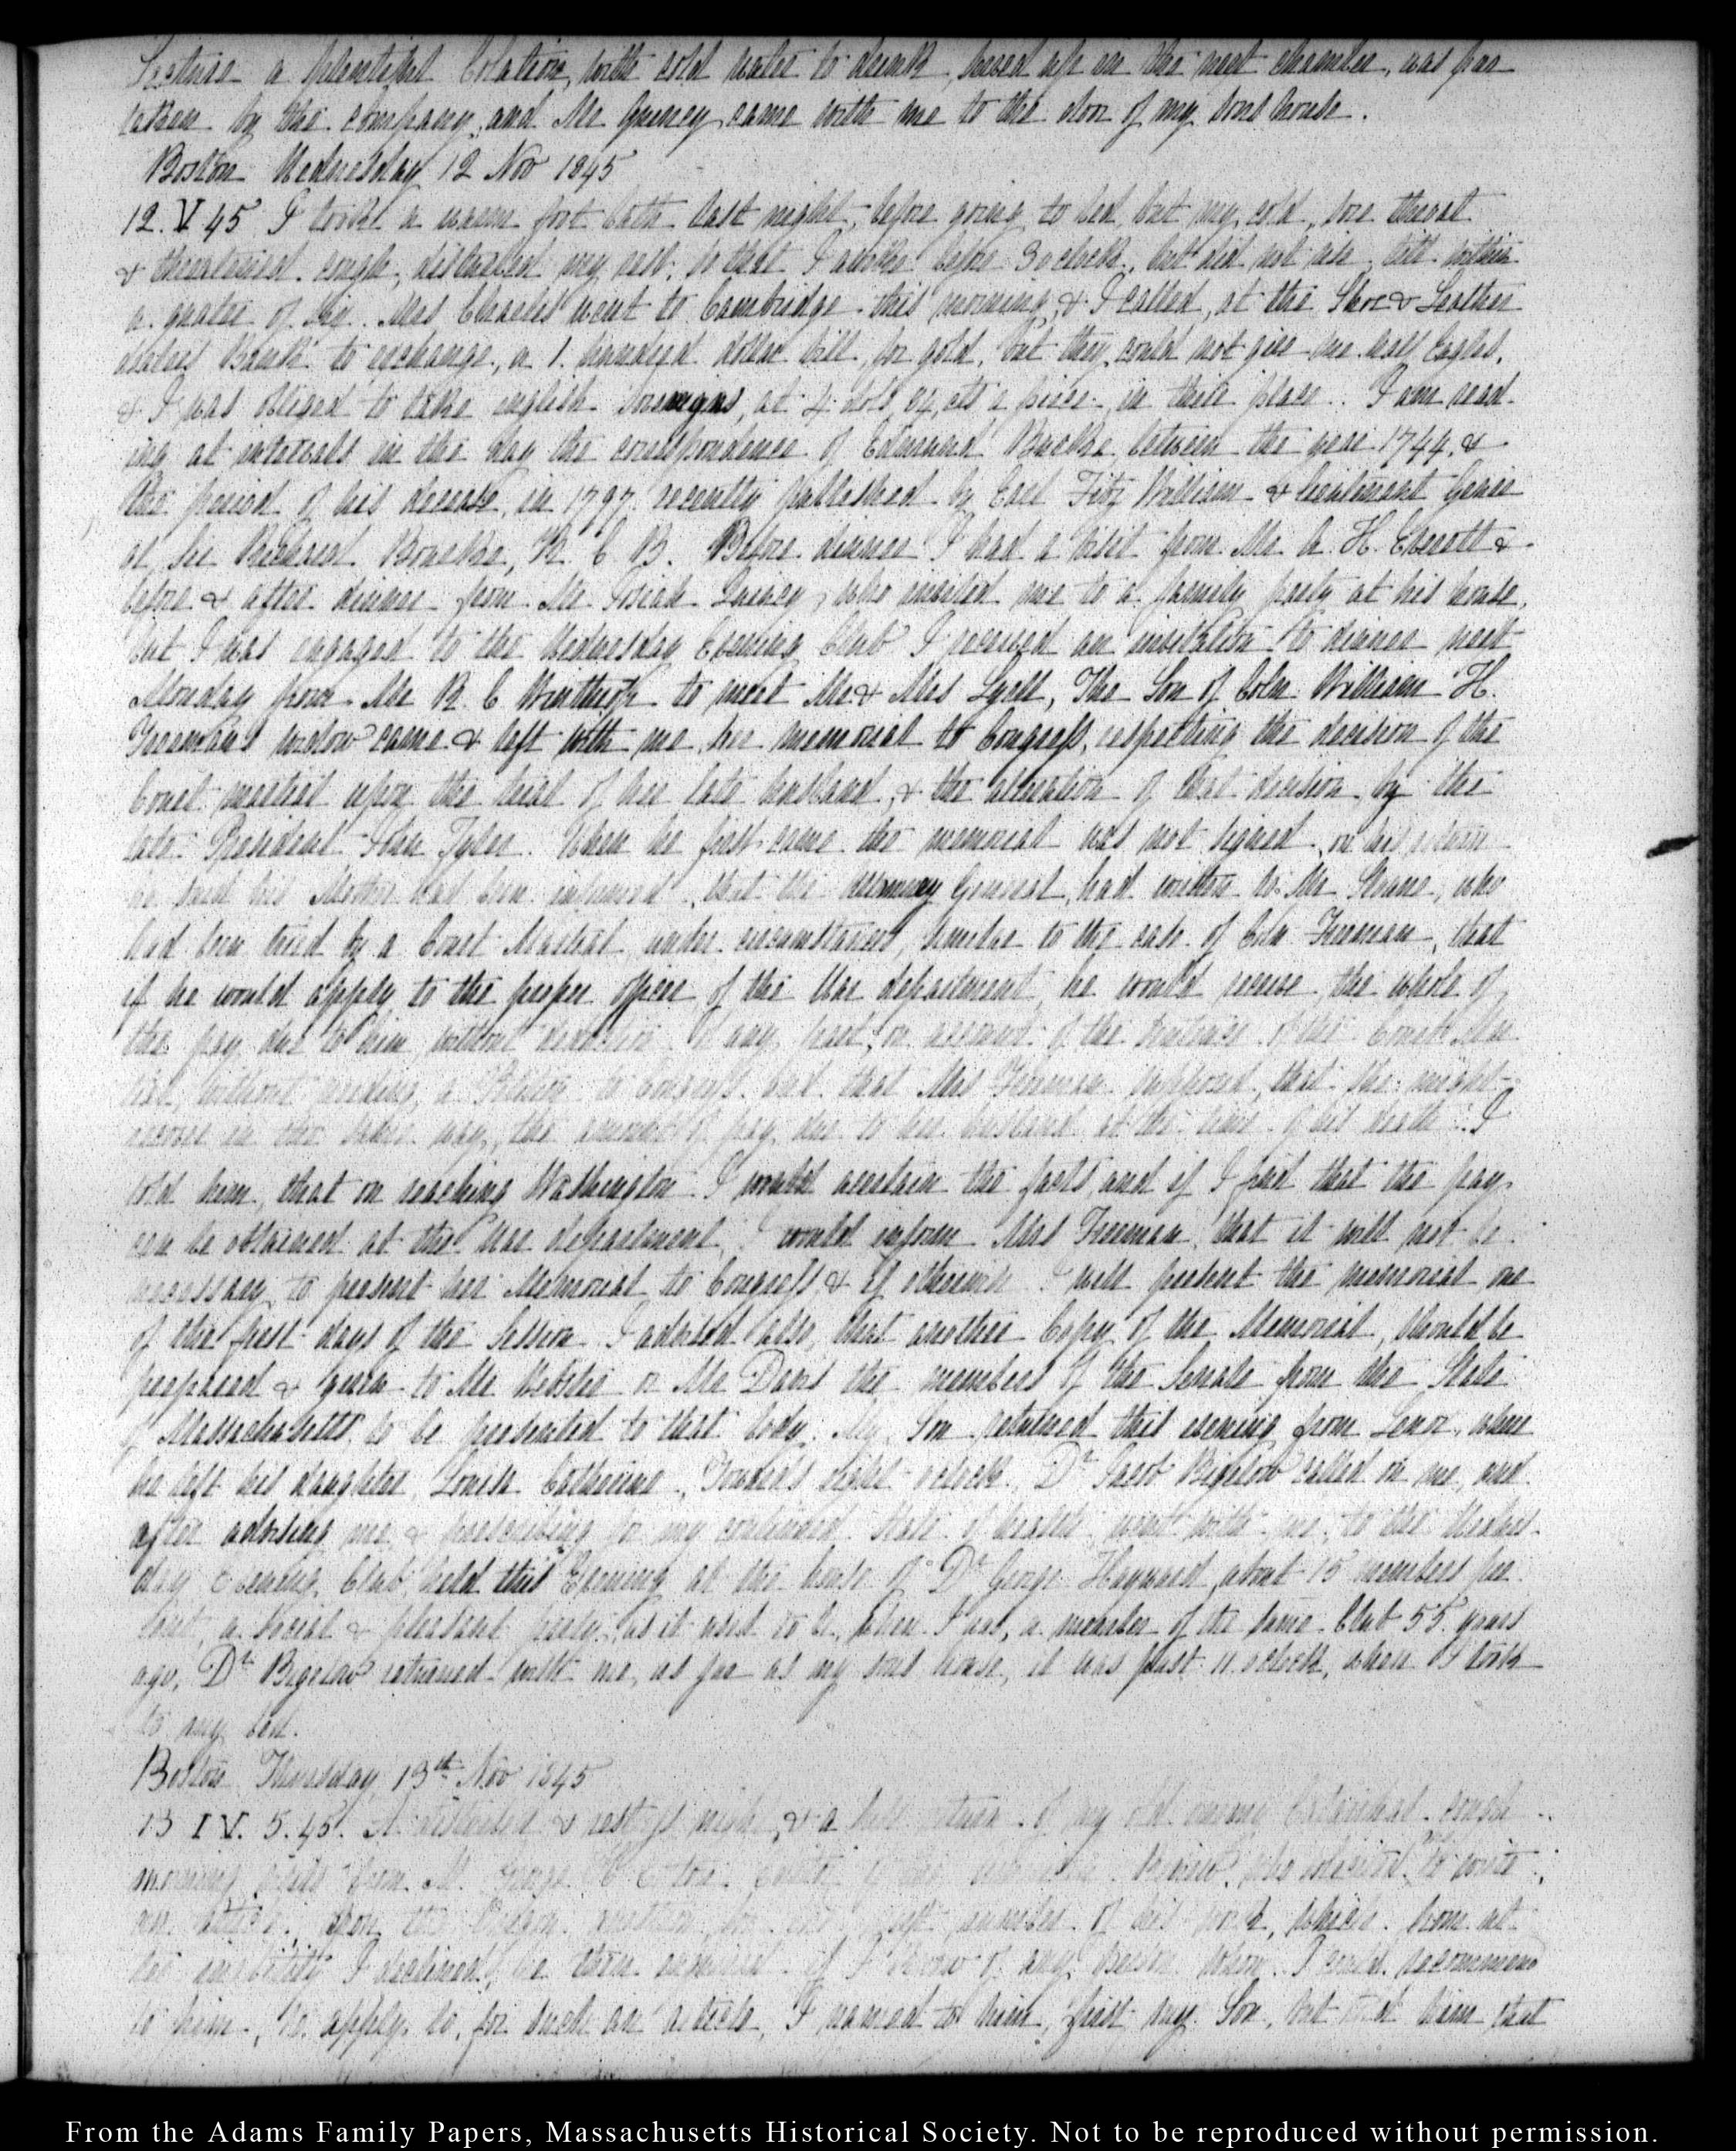 Lecture a plentiful Colation, with cold water to drink, served up in the next chamber, was par
taken by the company, and Mr Quincy came with me to the door of my sons house.
Boston Wednesday 12 Nov 1845
12. V 45 I took a warm foot bath last night, before going to bed, but my cold, sore throat
& cough, disturbed my rest, so that I awoke before 3 oclock, but did not rise, till within
a quater of six. Mrs Charles went to Cambridge this morning, & I called, at the Shoe & Leather
dealers Bank to exchange, a 1. hundred dollar bill, for gold, but they could not give me half Eagles,
& I was obliged to take english sovreigns, at 4 dols, 84, cts a piece in their place. I am read-
ing at intervals in the day the correspondence of Edmund Burke between the year 1744, &
the period of his decease, in 1797 recently published by Earl Fitz William & Lieutenant Gener
al Sir Richard Bourke, K. C B. Before dinner I had a visit from Mr A. H. Everett &
before & after dinner from Mr Josiah Quincy, who invited me to a family party at his house,
but I was engaged to the Wednesday Evening Club I received an invitation to dinner next
Monday from Mr R. C Winthrop to meet Mr & Mrs Lyell, The Son of Coln William H.
Freeman's widow came & left with me, her memorial to Congress, respecting the decision of the
Court martial upon the trial of her late husband, & the alteration of that decision by the
late President John Tyler. When he first came the memorial was not signed, on his return
he said his Mother had been informed, that the Attorney General, had written to Mr Sloane, who
had been tried by a Court Martial under circumstances, similar to the case of Coln Freeman, that
if he would apply to the proper officer of the War department, he would receive the whole of
the pay due to him without deduction of any part, on account of the sentence of the Court Mar
tial, without making a Petition to Congress and that Mrs Freeman supposed, that she might
receive in the same way, the amount of pay due to her husband at the time of his death. I
told him, that on reaching Washington I would ascertain the facts, and if I find that the pay
can be obtained at the War department, I would inform Mrs Freeman, that it will not be
necessary to present her Memorial to Congress, & if otherwise I will present the memorial one
of the first days of the Session I advised also, that another Copy of the Memorial, should be
prepared & given to Mr Webster or Mr Davis the members of the Senate from the State
of Massachusetts to be presented to that body. My Son returned this evening from Lenox, where
he left his daughter Louisa Catherine. Towards eight oclock. Dr Jacob Bigelow called on me, and
after advising me & prescribing for my continued state of health went with me to the Wednes-
day Evening Club, held this Evening at the house of Dr George Hayward about 15 members pre
sent, a social & pleasant party, as it used to be, when I was, a member of the same Club 55 years
ago, Dr Bigelow returned with me, as far as my sons house, it was past 11. oclock, when I took
to my bed.
Boston Thursday 13th Nov 1845
13 IV. 5. 45. A disturbed & restless night, & a return of my old enemy Catarrhal cough
morning visit from Mr George Review, who solicited me to write
an article upon the Oregon question number of his work, which from ut
ter inability I declined, he then enquired if I knew of any person whom I could recommend
to him, to apply to, for such an article, I named to him, first my Son, but told him that